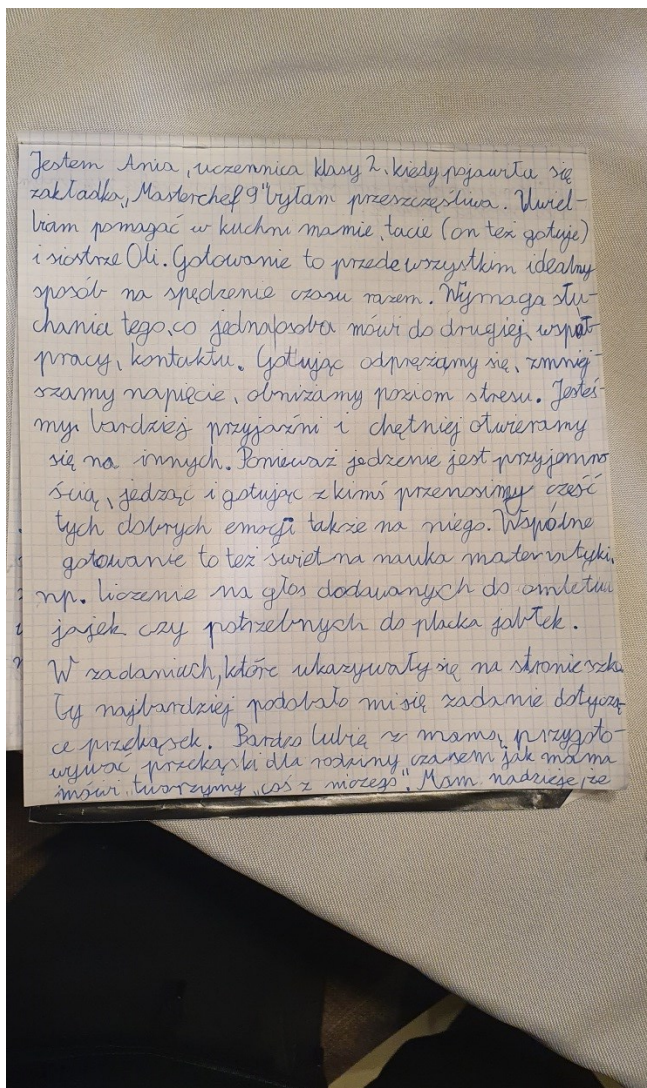 Jestem Ania, uczennica klasy 2. kiedy pojawiła się
zakładka „Masterchef 9" byłam przeszczęśliwa. Uwiel-
biam pomagać w kuchni mamie, tacie (on też gotuje)
i siostrze Oli. Gotowanie to przede wszystkim idealny
sposób na spędzenie czasu razem. Wymaga słu-
chania tego, co jedna osoba mówi do drugiej, współ-
pracy, kontaktu. Gotując odprężamy się, zmniej-
szamy napięcie, obniżamy poziom stresu. Jesteś-
my bardziej przyjaźni i chętniej otwieramy
się na innych. Ponieważ jedzenie jest przyjemno
ścią, jedząc i gotując z kimś przenosimy część
tych dobrych emocji także na niego. Wspólne
gotowanie to też świetna nauka matematyki,
np. liczenie na głos dodawanych do omletu
jajek czy potrzebnych do placka jabłek.
W zadaniach, które ukazywały się na stronie szko
ły najbardziej podobało mi się zadanie dotyczą
ce przekąsek. Bardzo lubię z mamą przygoto-
wywać przekąski dla rodziny czasem jak mama
mówi tworzymy „coś z niczego". Mam nadzieję, że